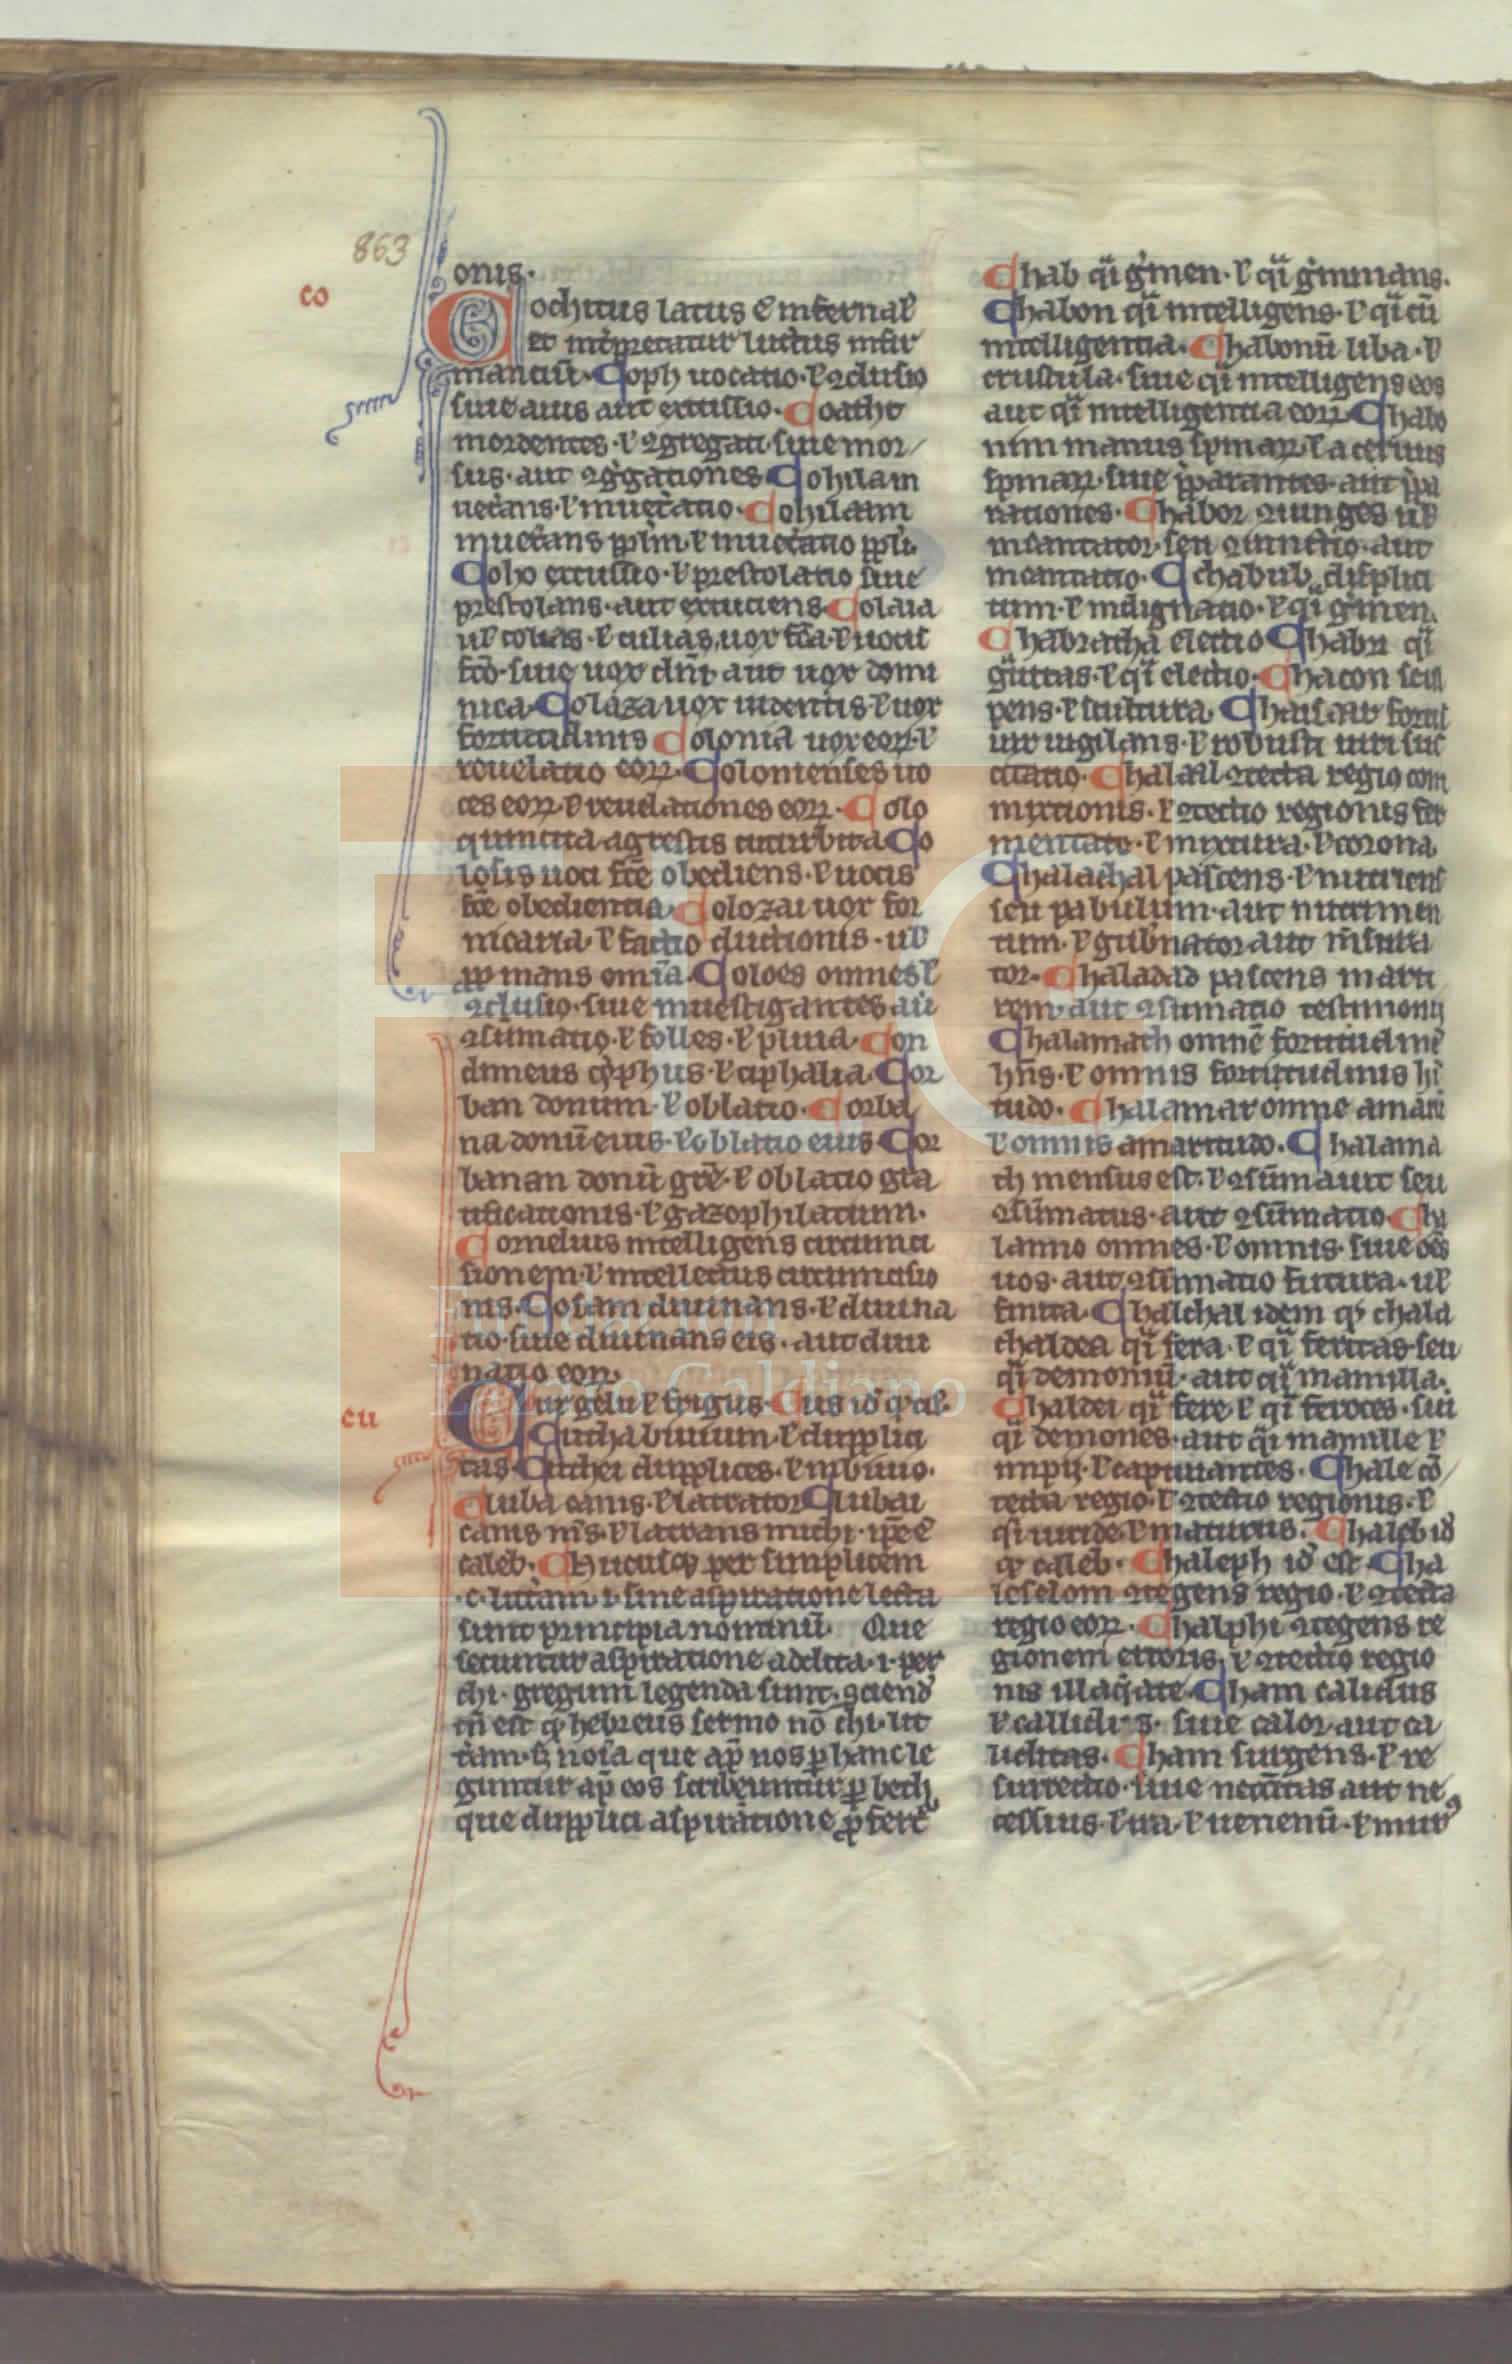 863
onis.
co
Cochitus latus ē infernal̄
et int̄pretatur luctus infir
mantiū. Coph uocatio. ł ɔclusio
siue auis aut excussio. Coatht
mordentes. ł ɔgregati. siue mor
sus. aut ɔg̾gationes Cohilam
uect̄ans. ł inuect̄atio. Cohilaim
inuect̄ans pplm̄. ł inuect̄atio ppl̄i.
Coho excussio. ł prestolatio siue
prestolans. aut excuciens. Colaia
ul̄ colias. ł culias. uox fc̄a. ł uocis
fc̄o. siue uox dn̄i aut uox domi
nica. Colaza uox uidentis. ł uox
fortitudinis Colonia uox eoꝝ. ł
reuelatio eoꝝ. Colonienses uo
ces eoꝝ. ł reuelationes eoꝝ. Colo
quintita agrestis cucurbita. Co
losis uoci fc̄e obediens. ł uocis
fc̄e obedientia. Colozai uox for
nicaria. ł factio ductionis. ul̄
ap̄ mans om̄ia. Coloes omnes ł
ɔclusio. siue inuestigantes aū
ɔsumatio. ł folles. ł pluia. Con
dineus cophus. ł ciphalia. Cor
ban donum. ł oblatio. Corba
na donū eius. ł oblatio eius Cor
banan donū gr̄e. ł oblatio gra
tificationis. ł gazophilatium.
Cornelius intelligens circunci
sionem. ł intellectus circuncisio
nis. Cosam diuinans. ł diuina
tio. siue diuinans eis. aut diui
natio eoꝝ.
cu
Cur gelu ł frigus. Cus id̄ qđ al̄.
Cucha biuium. ł dupplici
tas. Cuchei dupplices. ł in biuio.
Cluba canis. ł latrator Clubai
canis m̄s. ł latrans michi. ipse ē
caleb. Chucusqꝫ per simplicem
.c. litt̄am .i. sine aspiratione lecta
sunt principia nominū. Que
secuntur aspiratione addita .i. per
chi. grecum legenda sunt. Sciend̄
tn̄ est qđ hebreus sermo nō chi. lit
t̄am. sꝫ noīa que ap̄ nos ꝑ hanc le
guntur ap̄ eos scribeuntur ꝑ hech
que dupplici aspiratione ꝓfert᷑
Chab qi̾ g̾men. ł qi̾ g̾minans.
Chabon qi̾ intelligens. ł qi̾ cū
intelligentia. Chabonū liba. ł
crustula. siue qi̾ intelligens eos
aut qi̾ intelligentia eoꝝ. Chabo
nim manus spinaꝝ. ł aceruus
spinaꝝ. siue p̄parantes. aut p̄pa
rationes. Chabor ɔiunges ul̄
incantator. seu ɔiunctio. aut
incantatio. Cchabub displici
tum. ł indignatio. ł qi̾ g̾men.
Chabratha electio Chabri qi̾
guttas. ł qi̾ electio. Chacon scul
pens. ł scultura. Chaiar fortis
uir uigilans. ł robusti uiri sus
citatio. Chalail ɔtecta regio com
mixtionis. ł ɔtectio regionis fer
mentate. ł mixtura. ł corona
Chalachal pascens. ł nutriens
seu pabulum. aut nutrimen
tum. ł gub̄nator aut m̄sura
tor. Chaladad pascens marti
rem. aut ɔsumatio testimonij
Chalamach omnē fortitudinē
hn̄s. ł omnis fortitudinis hi
tudo. Chalamar omne amarū
ł omnis amaritudo. Chalama
th mensus est. ł ɔsūmauit seu
ɔsūmatus. aut ɔsūmatio. Cha
lanno omnes. ł omnis. siue oēs
uos. aut ɔsūmatio futura. ul̄
finita. Chalchal idem qđ chala
chaldea qi̾ fera. ł qi̾ feritas. seu
qi̾ demoniū. aut qi̾ mamilla.
Chaldei qi̾ fere ł qi̾ feroces. siue
qi̾ demones. aut qi̾ mamille ł
impij. ł captiuantes. Chale cō
tecta regio. ł ɔtectio regionis. ł
qi̾ uiride. ł maturus. Chaleb id̄
qđ caleb. Chaleph id̄ est. Cha
leselom ɔtegens regio. ł ɔtecta
regio eoꝝ. Chalphi ɔtegens re
gionem erroris. ł ɔtectio regio
nis illaq̄ate. Cham calidus
ł callidus. siue calor aut ca
liditas. Cham surgens. ł re
surrectio. siue necc̄itas aut ne
cessius. ł ira. ł uenenū. ł mur᷒
FLG
Fundación
Lázaro Galdiano